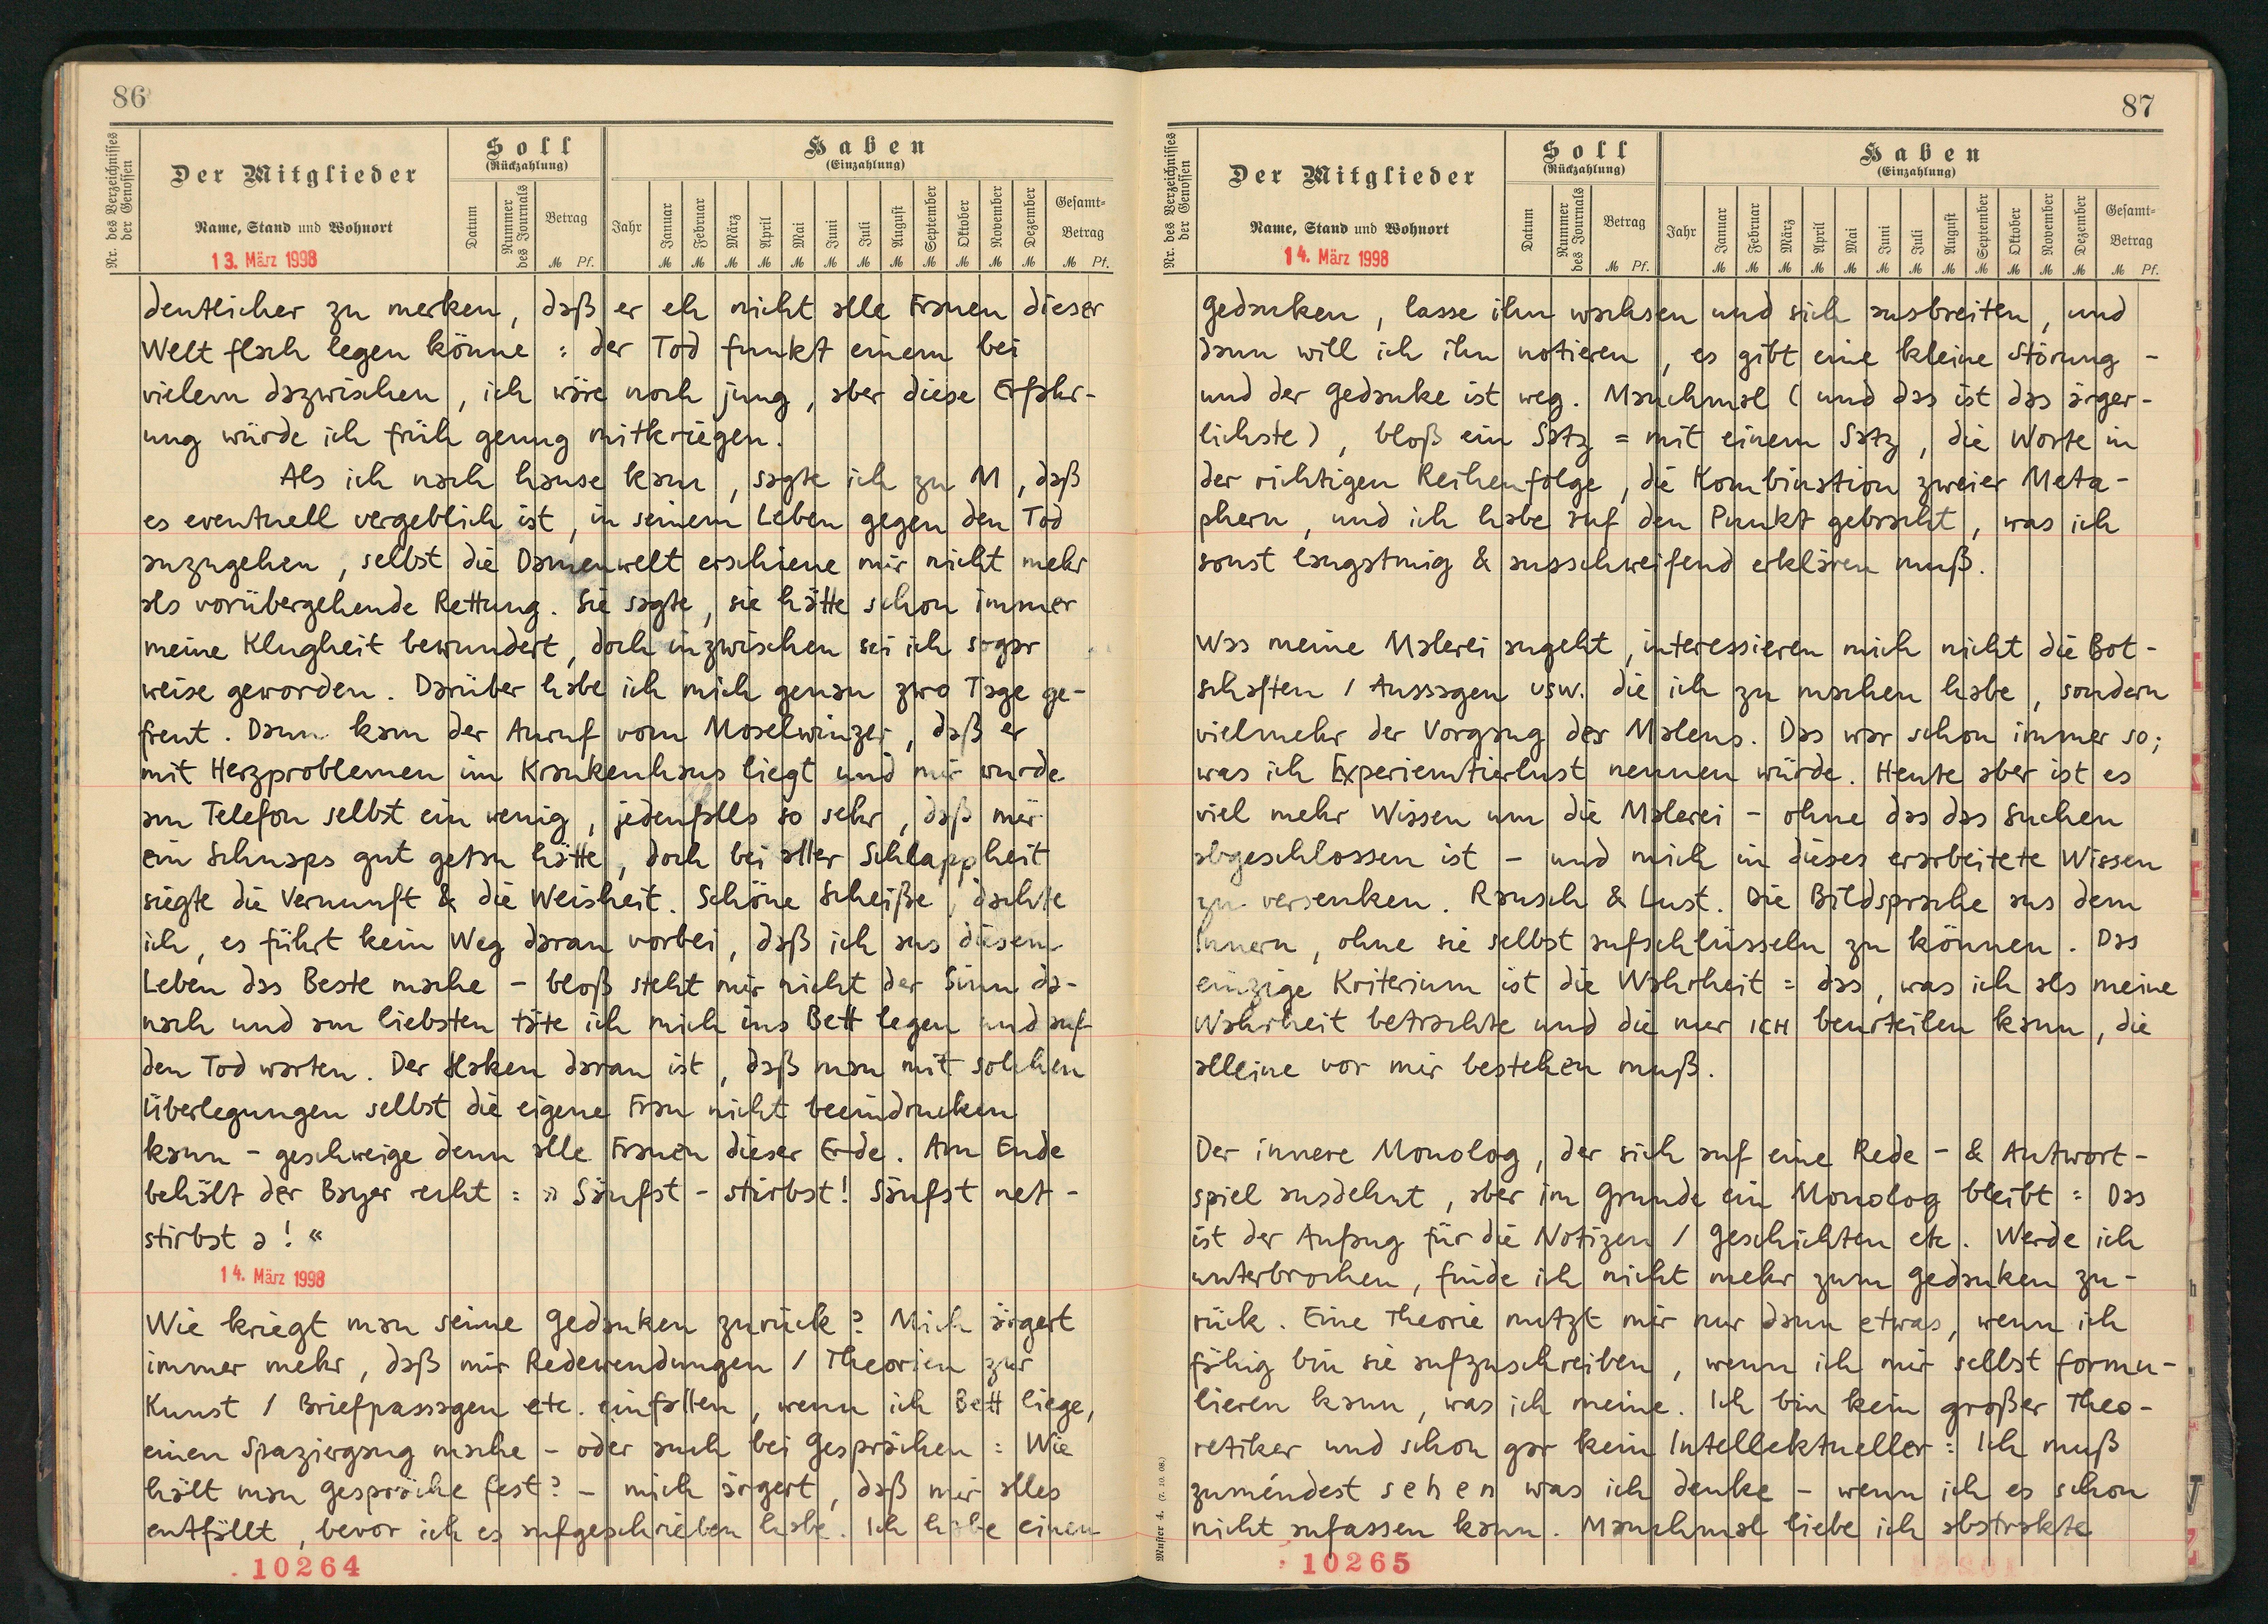 86
Nr. des Verzeichnisses der Genossen
Der Mitglieder
Name, Stand und Wohnort
Soll
(Rückzahlung)
Datum
Nummer des Journals
Betrag
M Pf.
Haben
(Einzahlung)
Jahr
Januar Februar März April Mai Juni Juli August September Oktober November Dezember
M M M M M M M M M M M M
Gesamt-
Betrag
M Pf.
13. März 1998
deutlicher zu merken, daß er eh nicht alle Frauen dieser
Welt flach legen könne : der Tod funkt einem bei
vielem dazwischen, ich wäre noch jung, aber diese Erfahr-
ung würde ich früh genug mitkriegen.
Als ich nach hause kam, sagte ich zu M, daß
es eventuell vergeblich ist, in seinem Leben gegen den Tod
anzugehen, selbst die Damenwelt erschiene mir nicht mehr
als vorübergehende Rettung. Sie sagte, sie hätte schon immer
meine Klugheit bewundert, doch inzwischen sei ich sogar
weise geworden. Darüber habe ich mich genau zwo Tage ge-
freut. Dann kam der Anruf vom Moselwinzer, daß er
mit Herzproblemen im Krankenhaus liegt und mir wurde
am Telefon selbst ein wenig, jedenfalls so sehr, daß mir
ein Schnaps gut getan hätte, doch bei aller Schlappheit
siegte die Vernunft & die Weisheit. Schöne Scheiße, dachte
ich, es führt kein Weg daran vorbei, daß ich aus diesem
Leben das Beste mache – bloß steht mir nicht der Sinn da-
nach und am liebsten täte ich mich ins Bett legen und auf
den Tod warten. Der Haken daran ist, daß man mit solchen
Überlegungen selbst die eigene Frau nicht beeindrucken
kann – geschweige denn alle Frauen dieser Erde. Am Ende
behält der Bayer recht : » Säufst – stirbst! Säufst net –
stirbst a! «
14. März 1998
Wie kriegt man seine Gedanken zurück? Mich ärgert
immer mehr, daß mir Redewendungen / Theorien zur
Kunst / Briefpassagen etc. einfallen, wenn ich Bett liege,
einen Spaziergang mache – oder auch bei Gesprächen : Wie
hält man Gespräche fest? – mich ärgert, daß mir alles
entfällt, bevor ich es aufgeschrieben habe. Ich habe einen
10264
87
Nr. des Verzeichnisses der Genossen
Der Mitglieder
Name, Stand und Wohnort
Soll
(Rückzahlung)
Datum
Nummer des Journals
Betrag
M Pf.
Haben
(Einzahlung)
Jahr
Januar Februar März April Mai Juni Juli August September Oktober November Dezember
M M M M M M M M M M M M
Gesamt-
Betrag
M Pf.
14. März 1998
Gedanken, lasse ihn wachsen und sich ausbreiten, und
dann will ich ihn notieren, es gibt eine kleine Störung –
und der Gedanke ist weg. Manchmal (und das ist das ärger-
lichste), bloß ein Satz = mit einem Satz, die Worte in
der richtigen Reihenfolge, die Kombination zweier Meta-
phern, und ich habe auf den Punkt gebracht, was ich
sonst langatmig & ausschweifend erklären muß.
Was meine Malerei angeht, interessieren mich nicht die Bot-
schaften / Aussagen usw. die ich zu machen habe, sondern
vielmehr der Vorgang des Malens. Das war schon immer so;
was ich Experiemtierlust nennen würde. Heute aber ist es
viel mehr Wissen um die Malerei – ohne das das Suchen
abgeschlossen ist – und mich in dieses erarbeitete Wissen
zu versenken. Rausch & Lust. Die Bildsprache aus dem
Innern, ohne sie selbst aufschlüsseln zu können. Das
einzige Kriterium ist die Wahrheit = das, was ich als meine
Wahrheit betrachte und die nur ICH beurteilen kann, die
alleine vor mir bestehen muß.
Der innere Monolog, der sich auf eine Rede- & Antwort-
spiel ausdehnt, aber im Grunde ein Monolog bleibt = Das
ist der Anfang für die Notizen / Geschichten etc. Werde ich
unterbrochen, finde ich nicht mehr zum Gedanken zu-
rück. Eine Theorie nutzt mir nur dann etwas, wenn ich
fähig bin sie aufzuschreiben, wenn ich mir selbst formu-
lieren kann, was ich meine. Ich bin kein großer Theo-
retiker und schon gar kein Intellektueller : Ich muß
zumindest sehen was ich denke – wenn ich es schon
nicht anfassen kann. Manchmal liebe ich abstrakte
10265
Muster 4.